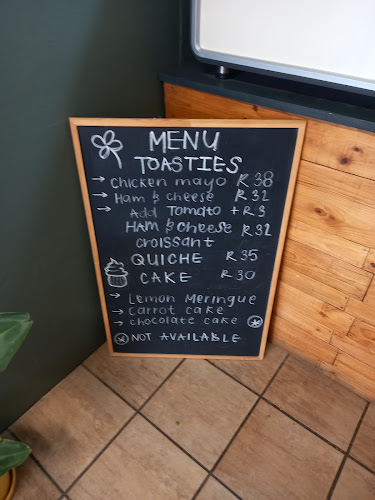 MENU
TOASTIES
→ Chicken mayo R 38
→ Ham & cheese R 32
→ Add Tomato + R 3
HAM & cheese R 32
croissant
QUICHE R 35
CAKE R 30
→ Lemon Meringue
→ carrot cake
→ chocolate cake ⊛
⊛ NOT AVAILABLE